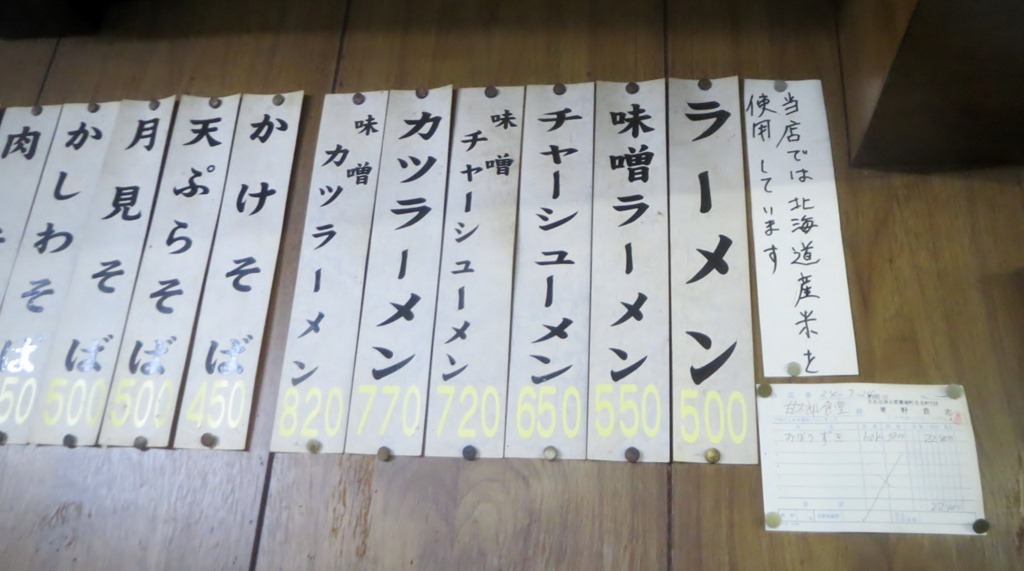 当店では北海道産米を
使用しています
ラーメン
500
味噌ラーメン
550
チャーシューメン
650
味噌
チャーシューメン
720
カツラーメン
770
味噌
カツラーメン
820
かけそば
450
天ぷらそば
月見そば
500
かしわそば
500
肉
そば
50